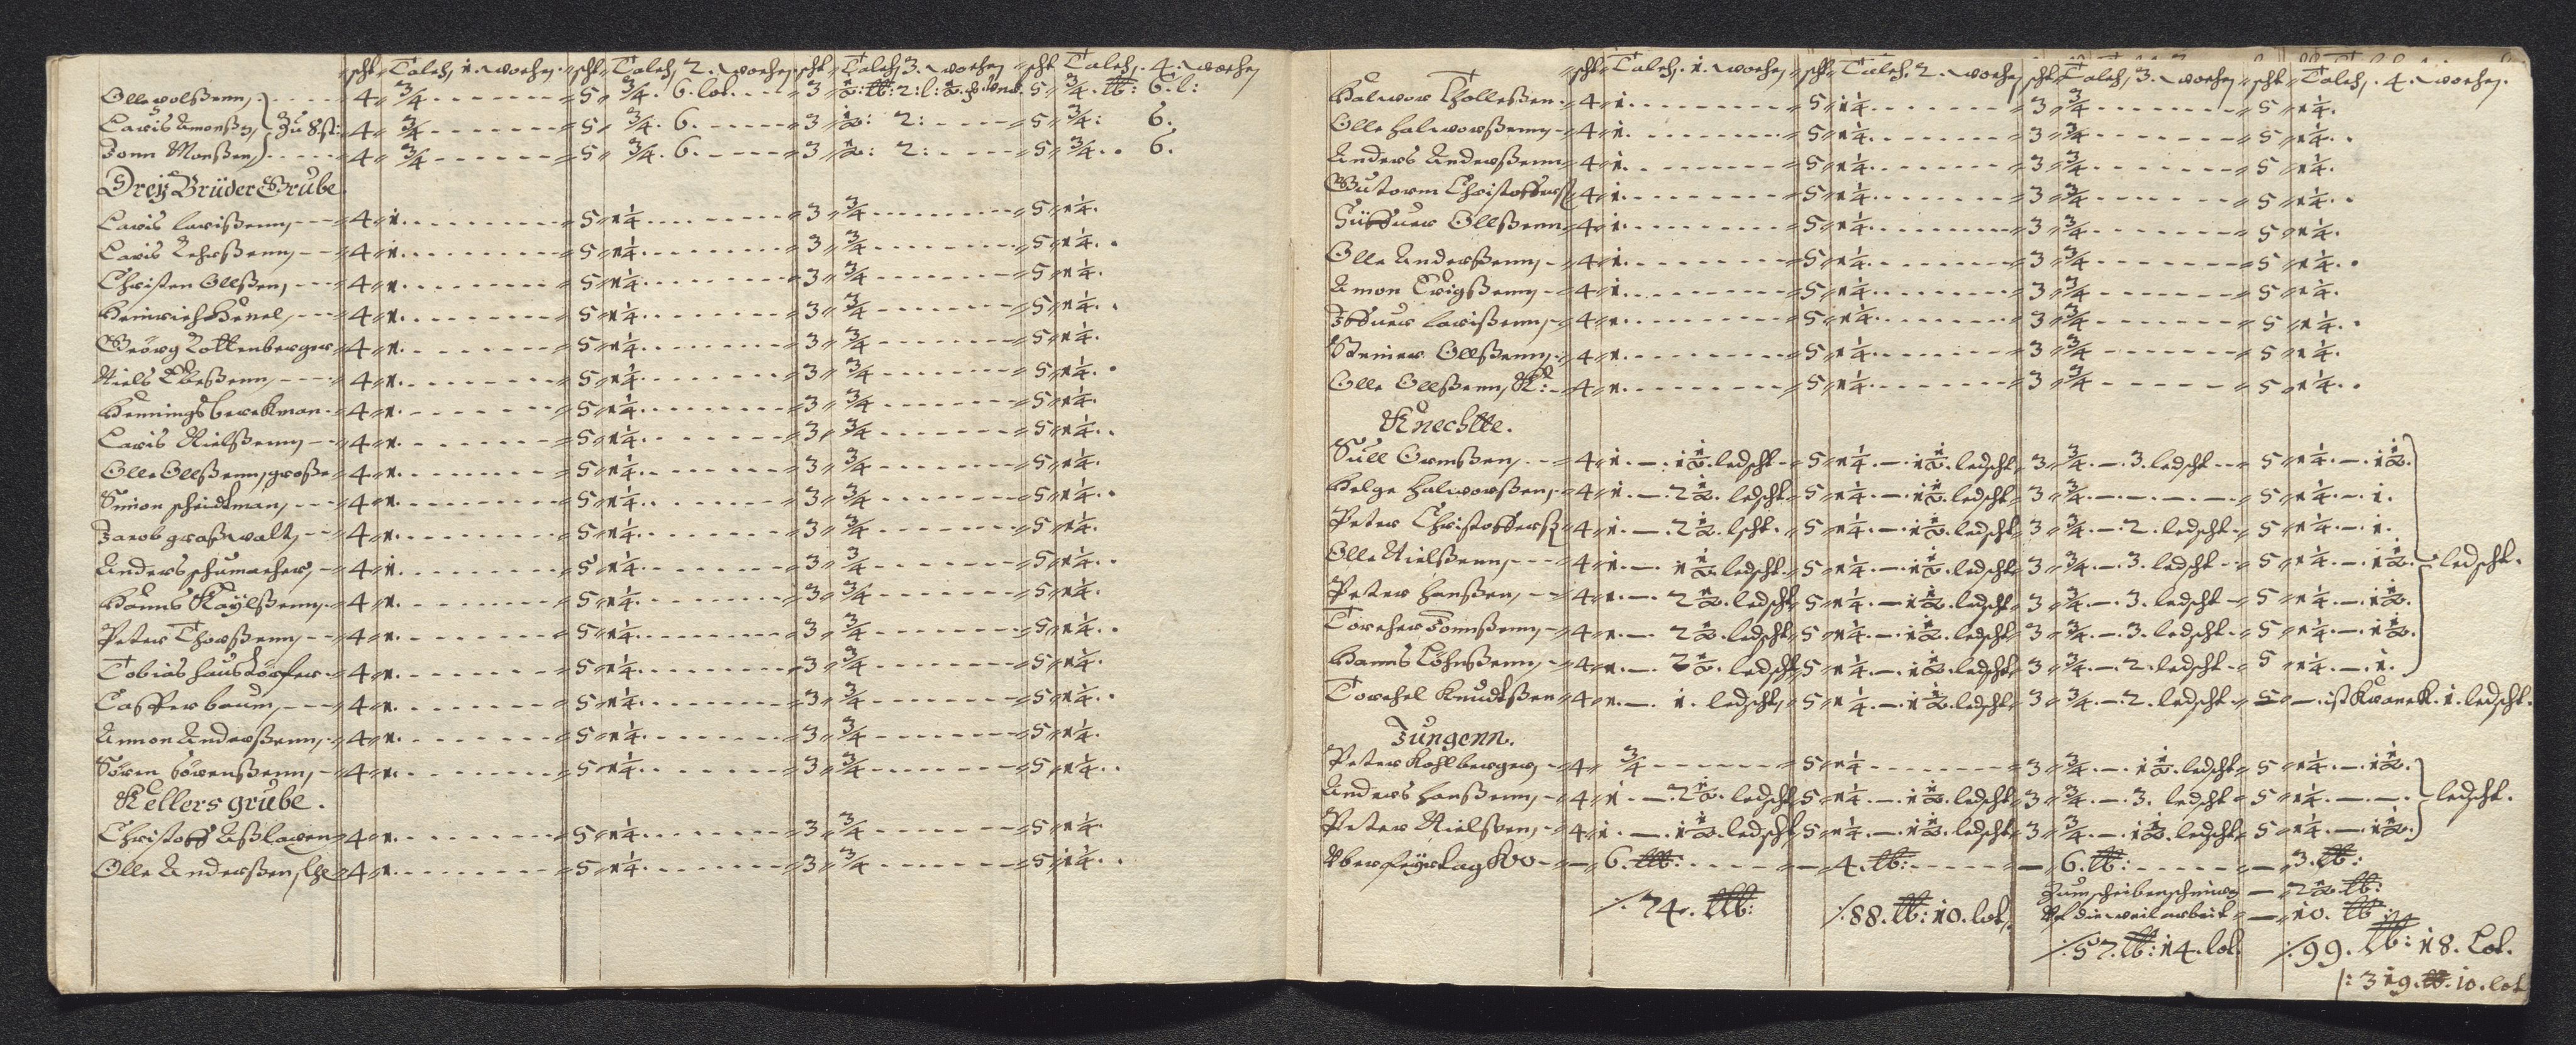 scht Talch, 1. wochen scht Talch, 2. wochen scht Talch, 3. wochen scht Talch. 4. wochen
Olle wolßenn, 4 3/4 5 3/4. 6. lot. 3 1/2: lb: 2: l: 5 3/4. lb: 6. l:
Laris Amonßen, Zu 8. st: 4 3/4 5 3/4. 6. 3 1/2: 2: 5 3/4: 6.
Jonn Monßen, 4 3/4 5 3/4. 6. 3 1/2: 2: 5 3/4. 6.
Dreÿ Brüder Grube.
Laris larißenn, 4 1. 5 1 1/4. 3 3/4 5 1 1/4.
Laris Rehrßenn, 4 1. 5 1 1/4. 3 3/4 5 1 1/4.
Christen Ollßen, 4 1. 5 1 1/4. 3 3/4 5 1 1/4.
Heinrich Henel, 4 1. 5 1 1/4. 3 3/4 5 1 1/4.
Geörg Rottenberger 4 1. 5 1 1/4. 3 3/4 5 1 1/4.
Niels Ebeßenn, 4 1. 5 1 1/4. 3 3/4 5 1 1/4.
Hennings berekman. 4 1. 5 1 1/4. 3 3/4 5 1 1/4.
Laris Nielßenn 4 1. 5 1 1/4. 3 3/4 5 1 1/4.
Olle Ollßenn, große 4 1. 5 1 1/4. 3 3/4 5 1 1/4.
Simon scheidtman, 4 1. 5 1 1/4. 3 3/4 5 1 1/4.
Jacob graßwalt, 4 1. 5 1 1/4. 3 3/4 5 1 1/4.
Anders schumacher, 4 1. 5 1 1/4. 3 3/4 5 1 1/4.
Hanns Kaÿlßenn, 4 1. 5 1 1/4. 3 3/4 5 1 1/4.
Peter Thorßenn, 4 1. 5 1 1/4. 3 3/4 5 1 1/4.
Tobias hausdörfer 4 1. 5 1 1/4. 3 3/4 5 1 1/4.
Casper baum, 4 1. 5 1 1/4. 3 3/4 5 1 1/4.
Ammon Anderßenn, 4 1. 5 1 1/4. 3 3/4 5 1 1/4.
Sören sörenßenn, 4 1. 5 1 1/4. 3 3/4 5 1 1/4.
Kellers grube.
Christoff Aßlacen 4 1. 5 1 1/4. 3 3/4 5 1 1/4.
Olle Anderßen, 4 1. 5 1 1/4. 3 3/4 5 1 1/4.
scht Talch. 1. wochen scht Talch. 2. wochen scht Talch, 3. wochen scht Talch, 4. wochen.
Halwor Tholleßen 4 1. 5 1 1/4. 3 3/4 5 1 1/4.
Olle halworßenn 4 1. 5 1 1/4. 3 3/4 5 1 1/4.
Anders Anderßenn 4 1. 5 1 1/4. 3 3/4 5 1 1/4.
Guttorm Christoffers 4 1. 5 1 1/4. 3 3/4 5 1 1/4.
Ollßenn 4 1. 5 1 1/4. 3 3/4 5 1 1/4.
Olle Anderßenn, 4 1. 5 1 1/4. 3 3/4 5 1 1/4.
Amon Erigßenn 4 1. 5 1 1/4. 3 3/4 5 1 1/4.
larißenn, 4 1. 5 1 1/4. 3 3/4 5 1 1/4.
Steiner Ollßenn, 4 1. 5 1 1/4. 3 3/4 5 1 1/4.
Olle Ollßenn, K: 4 1. 5 1 1/4. 3 3/4 5 1 1/4.
Knechtte.
Gull Ormßen, 4 1. 1 1/2. ledscht 5 1 1/4. 1 1/2. ledscht 3 3/4. 3. ledscht 5 1 1/4. 1 1/2.
Helge halworßen, 4 1. 2 1/2. ledscht 5 1 1/4. 1 1/2. ledscht 3 3/4. 5 1 1/4. 1.
Peter Christoffers 4 1. 2 1/2. lscht. 5 1 1/4. 1 1/2. ledscht 3 3/4. 2. ledscht 5 1 1/4. 1.
Olle Nielßenn, 4 1. 1 1/2. ledscht 5 1 1/4. 1 1/2. ledscht 3 3/4. 3. ledscht 5 1 1/4. 1 1/2. ledscht.
Peter Hanßen, 4 1. 2 1/2. ledscht 5 1 1/4. 1 1/2. ledscht 3 3/4. 3. ledscht 5 1 1/4. 1 1/2.
Torcher Jonnßenn, 4 1. 2 1/2. ledscht 5 1 1/4. 1 1/2. ledscht 3 3/4. 3. ledscht 5 1 1/4. 1 1/2.
Hanns Löhnßenn, 4 1. 2 1/2. ledscht 5 1 1/4. 1 1/2. ledscht 3 3/4. 2. ledscht 5 1 1/4. 1.
Torchel Knudtßen 4 1. 1. ledscht, 5 1 1/4. 1 1/2. ledscht 3 3/4. 2. ledscht 5 ist Kranck. 1. ledscht.
Jungenn.
Peter Kohlberger, 4 3/4 5 1 1/4 3 3/4. 1 1/2. ledscht 5 1 1/4. 1 1/2.
Anders Hanßenn, 4 1. 2 1/2. ledscht 5 1 1/4. 1 1/2. ledscht 3 3/4. 3. ledscht 5 1 1/4. ledscht.
Peter Nielßen, 4 1. 1 1/2. ledscht 5 1 1/4. 1 1/2. ledscht 3 3/4. 1 1/2. ledscht 5 1 1/4. 1 1/2.
6. lb: 4. lb: 6. lb: 3. lb:
Zum scheiben schmiren 2 1/2 lb:
Vf die weil arbeit 10. lb
74. lb: 88. lb: 10. lot, 57. lb: 14. lot. 99. lb: 18. Lot.
319. lb. 10. lot